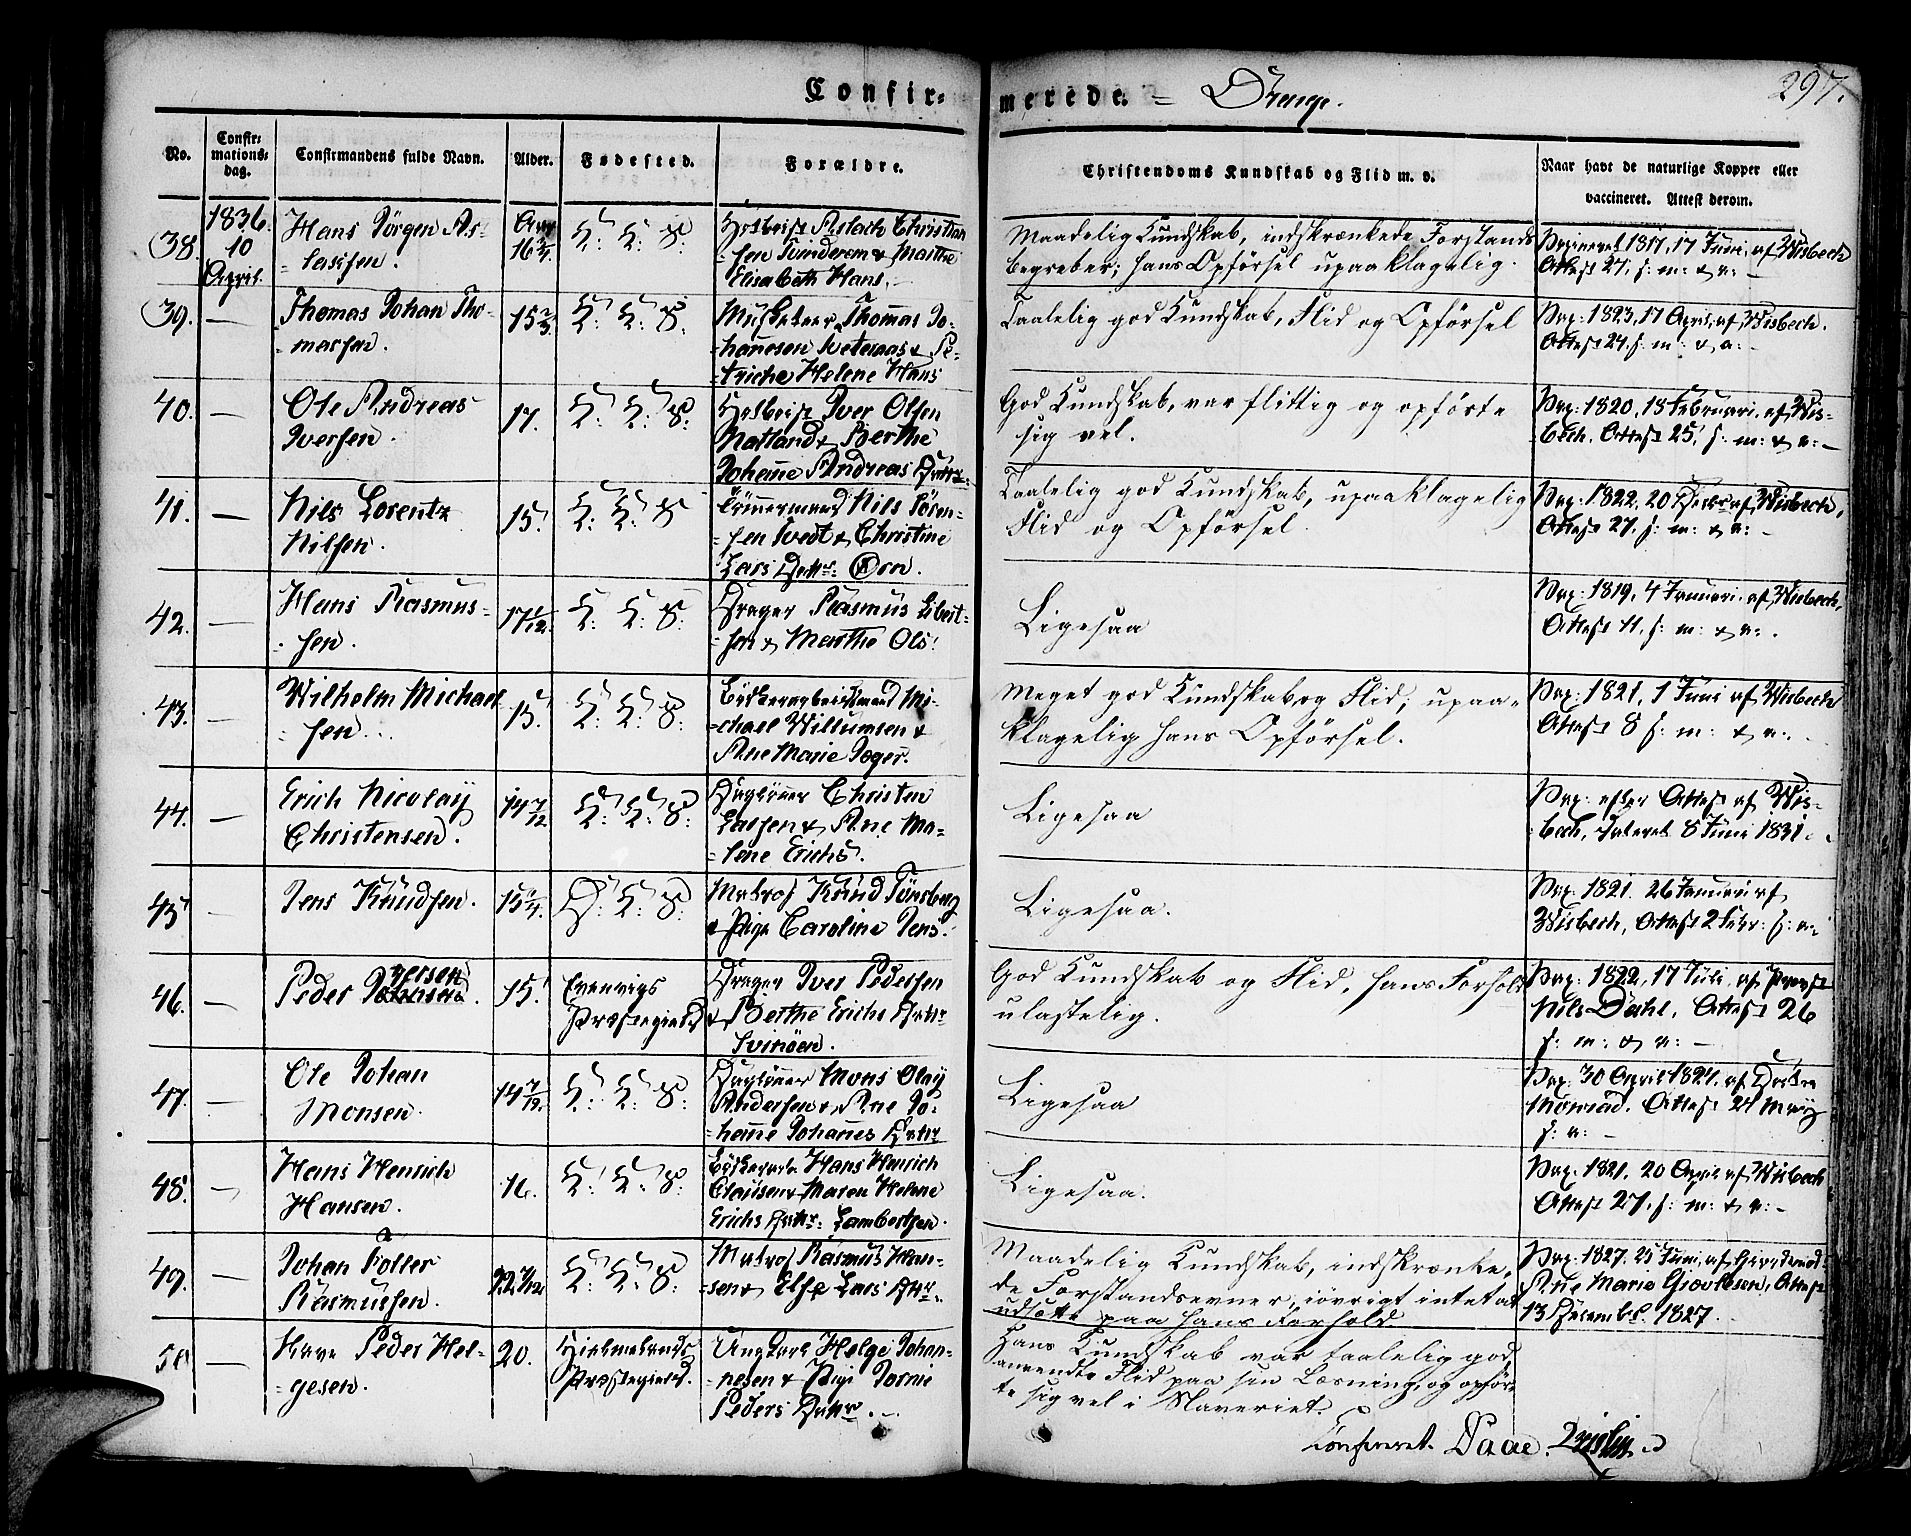 Confir-merede. = Drenge.
297.
No.
Confir-
mations-
dag.
Confirmandens fulde Navn.
Alder.
Fødested.
Forældre.
Christendoms Kundskab og Flid m. v.
Naar havt de naturlige Kopper eller
vaccineret. Attest derom.
38.
1836.
10
April.
Hans Jörgen As-
-lassen.
Aar
16 3/4
K: K: S:
Aslach Christian
-sen Tvinderem & Marthe
Elisabeth Hans.
Maadelig Kundskab, indskrænkede Forstands
begreber; hans Opförsel upaaklagelig.
Vaxineret 1817, 17 Juni, af Wisbech
Attest 27. s: m: & a: –
39.
—
Thomas Johan Tho-
-massen.
15 2/3
K: K: S:
Musketeer Thomas Jo-
-hannesen Weteraas & Pe-
-triche Helene Hans
Taalelig god Kundskab, Flid og Opförsel
Vax: 1823, 17 April, af Wisbech.
Attest 24. s: m: & a: –
40.
—
Ole Andreas
Iversen.
17.
K: K: S:
Iver Olsen
Natland & Berthe
Johanne Andreas Dattr:
God Kundskab, var flittig og opförte
sig vel.
Vax: 1820, 18 Februari, af Wis-
-bech. Attest 25. s: m: & a: –
41.
—
Nils Lorentz
Nilsen.
15.
K: K: S:
Tömmermand Nils Sören-
-sen Tvedt & Christine
Lars Dattr: Örn.
Taalelig god Kundskab, upaaklagelig
Flid og Opförsel.
Vax: 1822, 20 Decbr af Wisbech,
Attest 27. s: m: & a: –
42.
—
Hans Rasmus-
-sen.
17 1/12.
K: K: S:
Drager Rasmus Libert-
-sen & Marthe Ols:
Ligesaa
Vax: 1819, 4 Januari, af Wisbech,
Attest 11. s: m: & a: .
43.
—
Wilhelm Michael
-sen.
15.
K: K: S:
Mi-
-chael Willumsen &
Ane Marie Joger.
Meget god Kundskab og Flid; upaa-
klagelig hans Opförsel.
Vax: 1821, 1 Juni af Wisbech
Attest 8 s: m: & a: .
44.
—
Erich Nicolay
Christensen.
14 7/12
K: K: S:
Daglönner Christen
Larsen & Ane Ma-
-lene Erichs.
Ligesaa
Vax: efter Attest af Wis-
-bech, dateret 8 Juni 1831.
45
—
Jens Knudsen.
15 1/4.
D: K: S:
Matros Knud Tönsberg
& Pige Caroline Jens.
Ligesaa.
Vax: 1821. 26 Januari af
Wisbech, Attest 2 Febr: s: a:
46.
—
Peder Iversen.
15.
Evenvigs
Præstegield
Drager Iver Pedersen
& Berthe Erichs Dattr
Svinöen.
God Kundskab og Flid, hans Forhold
ulastelig.
Vax: 1822, 17 Juli, af Provst
Nils Dahl, Attest 26
s: m: & a: –
47.
—
Ole Johan
Monsen.
14 7/12.
K: K: S:
Daglönner Mons Olay
Andersen & Ane Jo-
-hanne Johannes Dattr
Ligesaa
Vax: 30 April 1824, af Doctor
Monrad. Attest 24 May
s: a: –
48.
—
Hans Henrich
Hansen.
16.
K: K: S:
Hans Henrich
Clausen & Maren Helene
Erichs Dattr: Lambertsen.
Ligesaa.
Vax: 1821, 20 April af Wisbech
Attest 27. s: m: & a: –
49.
—
Johan Foller
Rasmussen.
22 7/12
K: K: S:
Matros Rasmus Han-
-sen & Else Lars Dattr.
Maadelig Kundskab, indskrænke-
de Forstandsevner, iövrigt intet at
udsætte paa hans Forhold
Vax: 1827. 25 Juni, af
Ane Marie Giovlesen, Attest
13 Decembr. 1827.
50
—
Have Peder Hel-
-gesen.
20.
Hielmelands
Præstegield.
Ungkarl Helge Johan-
-nesen & Pige Jornie
Peders Dattr.
Hans Kundskab var taalelig god,
anvendte Flid paa sin Læsning, og opför-
te sig vel i Slaveriet.
Confereret. Daae.